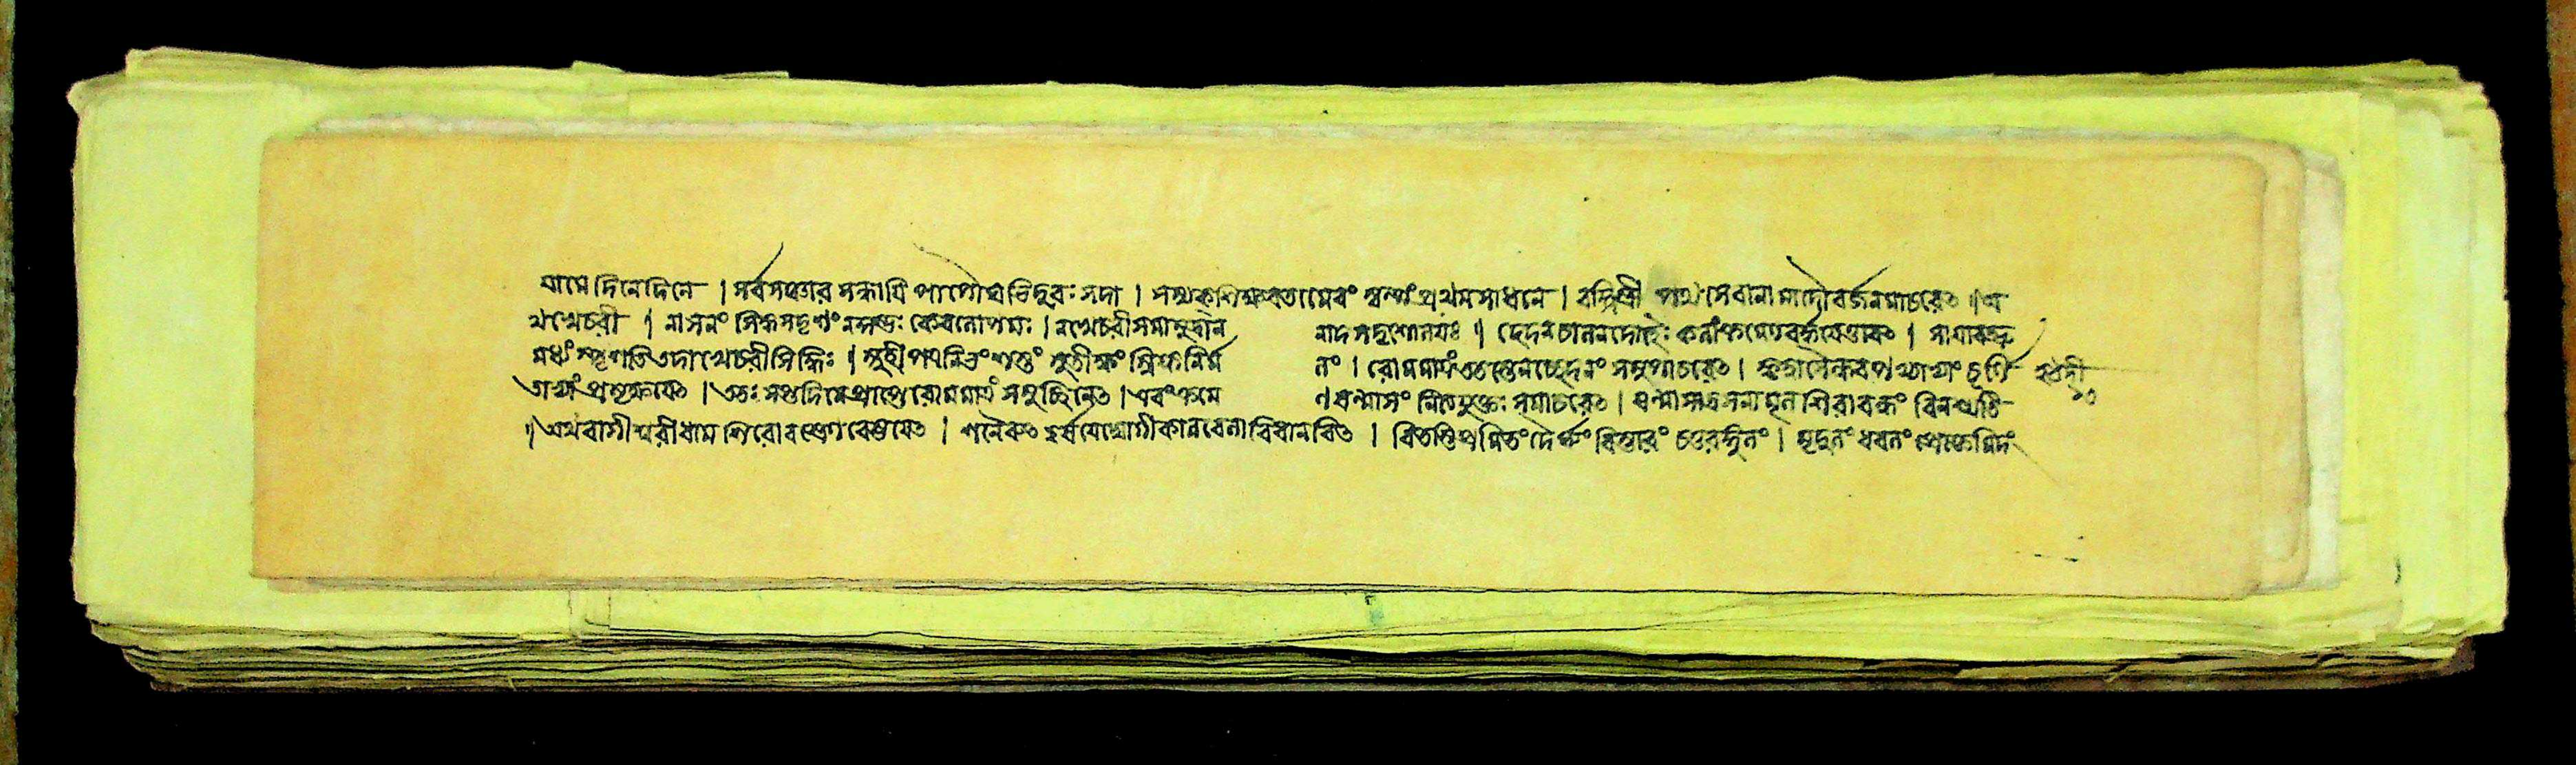 যামে দিনেদিনে । সর্বসত্তার সন্ধাপি পাপৌঘ ভিদুরঃ সদা । সম্যক্ শিক্ষবতামেবং স্বল্পং প্রথমসাধনে । বহ্নিস্ত্রী পথসেবানামাদৌ বর্জনমাচরেৎ ॥ অ
থখেচরী । নাসনং সিদ্ধসদৃশং নকুম্ভঃ কেবলোপমঃ । নখেচরীসমামুদ্রা ন নাদসদৃশোলয়ঃ ॥ ছেদনচালনদোহৈঃ কলাং ক্রমেণবর্দ্ধয়েত্তাবৎ । সাযাবদ্ভ্রূ
মধ্যং স্পৃশতি তদা খেচরীসিদ্ধিঃ । স্নুহী পত্রনিভং শস্ত্রং সুতীক্ষ্ণং স্নিগ্ধনির্ম লং । রোমমাত্রং ততস্তেনচ্ছেদনং সমুপাচরেৎ । চূর্ণি
তাভ্যাং প্রঘর্ষয়েৎ । ততঃ সপ্তদিনে প্রাপ্তে রোমমাত্রং সমুচ্ছিনেৎ । এবংক্রমে ণ ষন্মাসং নিত্যযুক্তঃ সমাচরেৎ । ষন্মাসাদ্রসনামূলশিরাবন্ধঃ বিনশ্যতি
॥ অথবাগীশ্বরীধাম শিরোবস্ত্রেণ বেষ্টয়েৎ । শনৈরুৎকর্ষয়েদ্যোগীকালবেলাবিধানবিৎ । বিতস্তিপ্রমিতং দৈর্ঘ্যং বিস্তারং চতুরঙ্গুলং । মৃদুলং ধবলং প্রোক্তমিদং